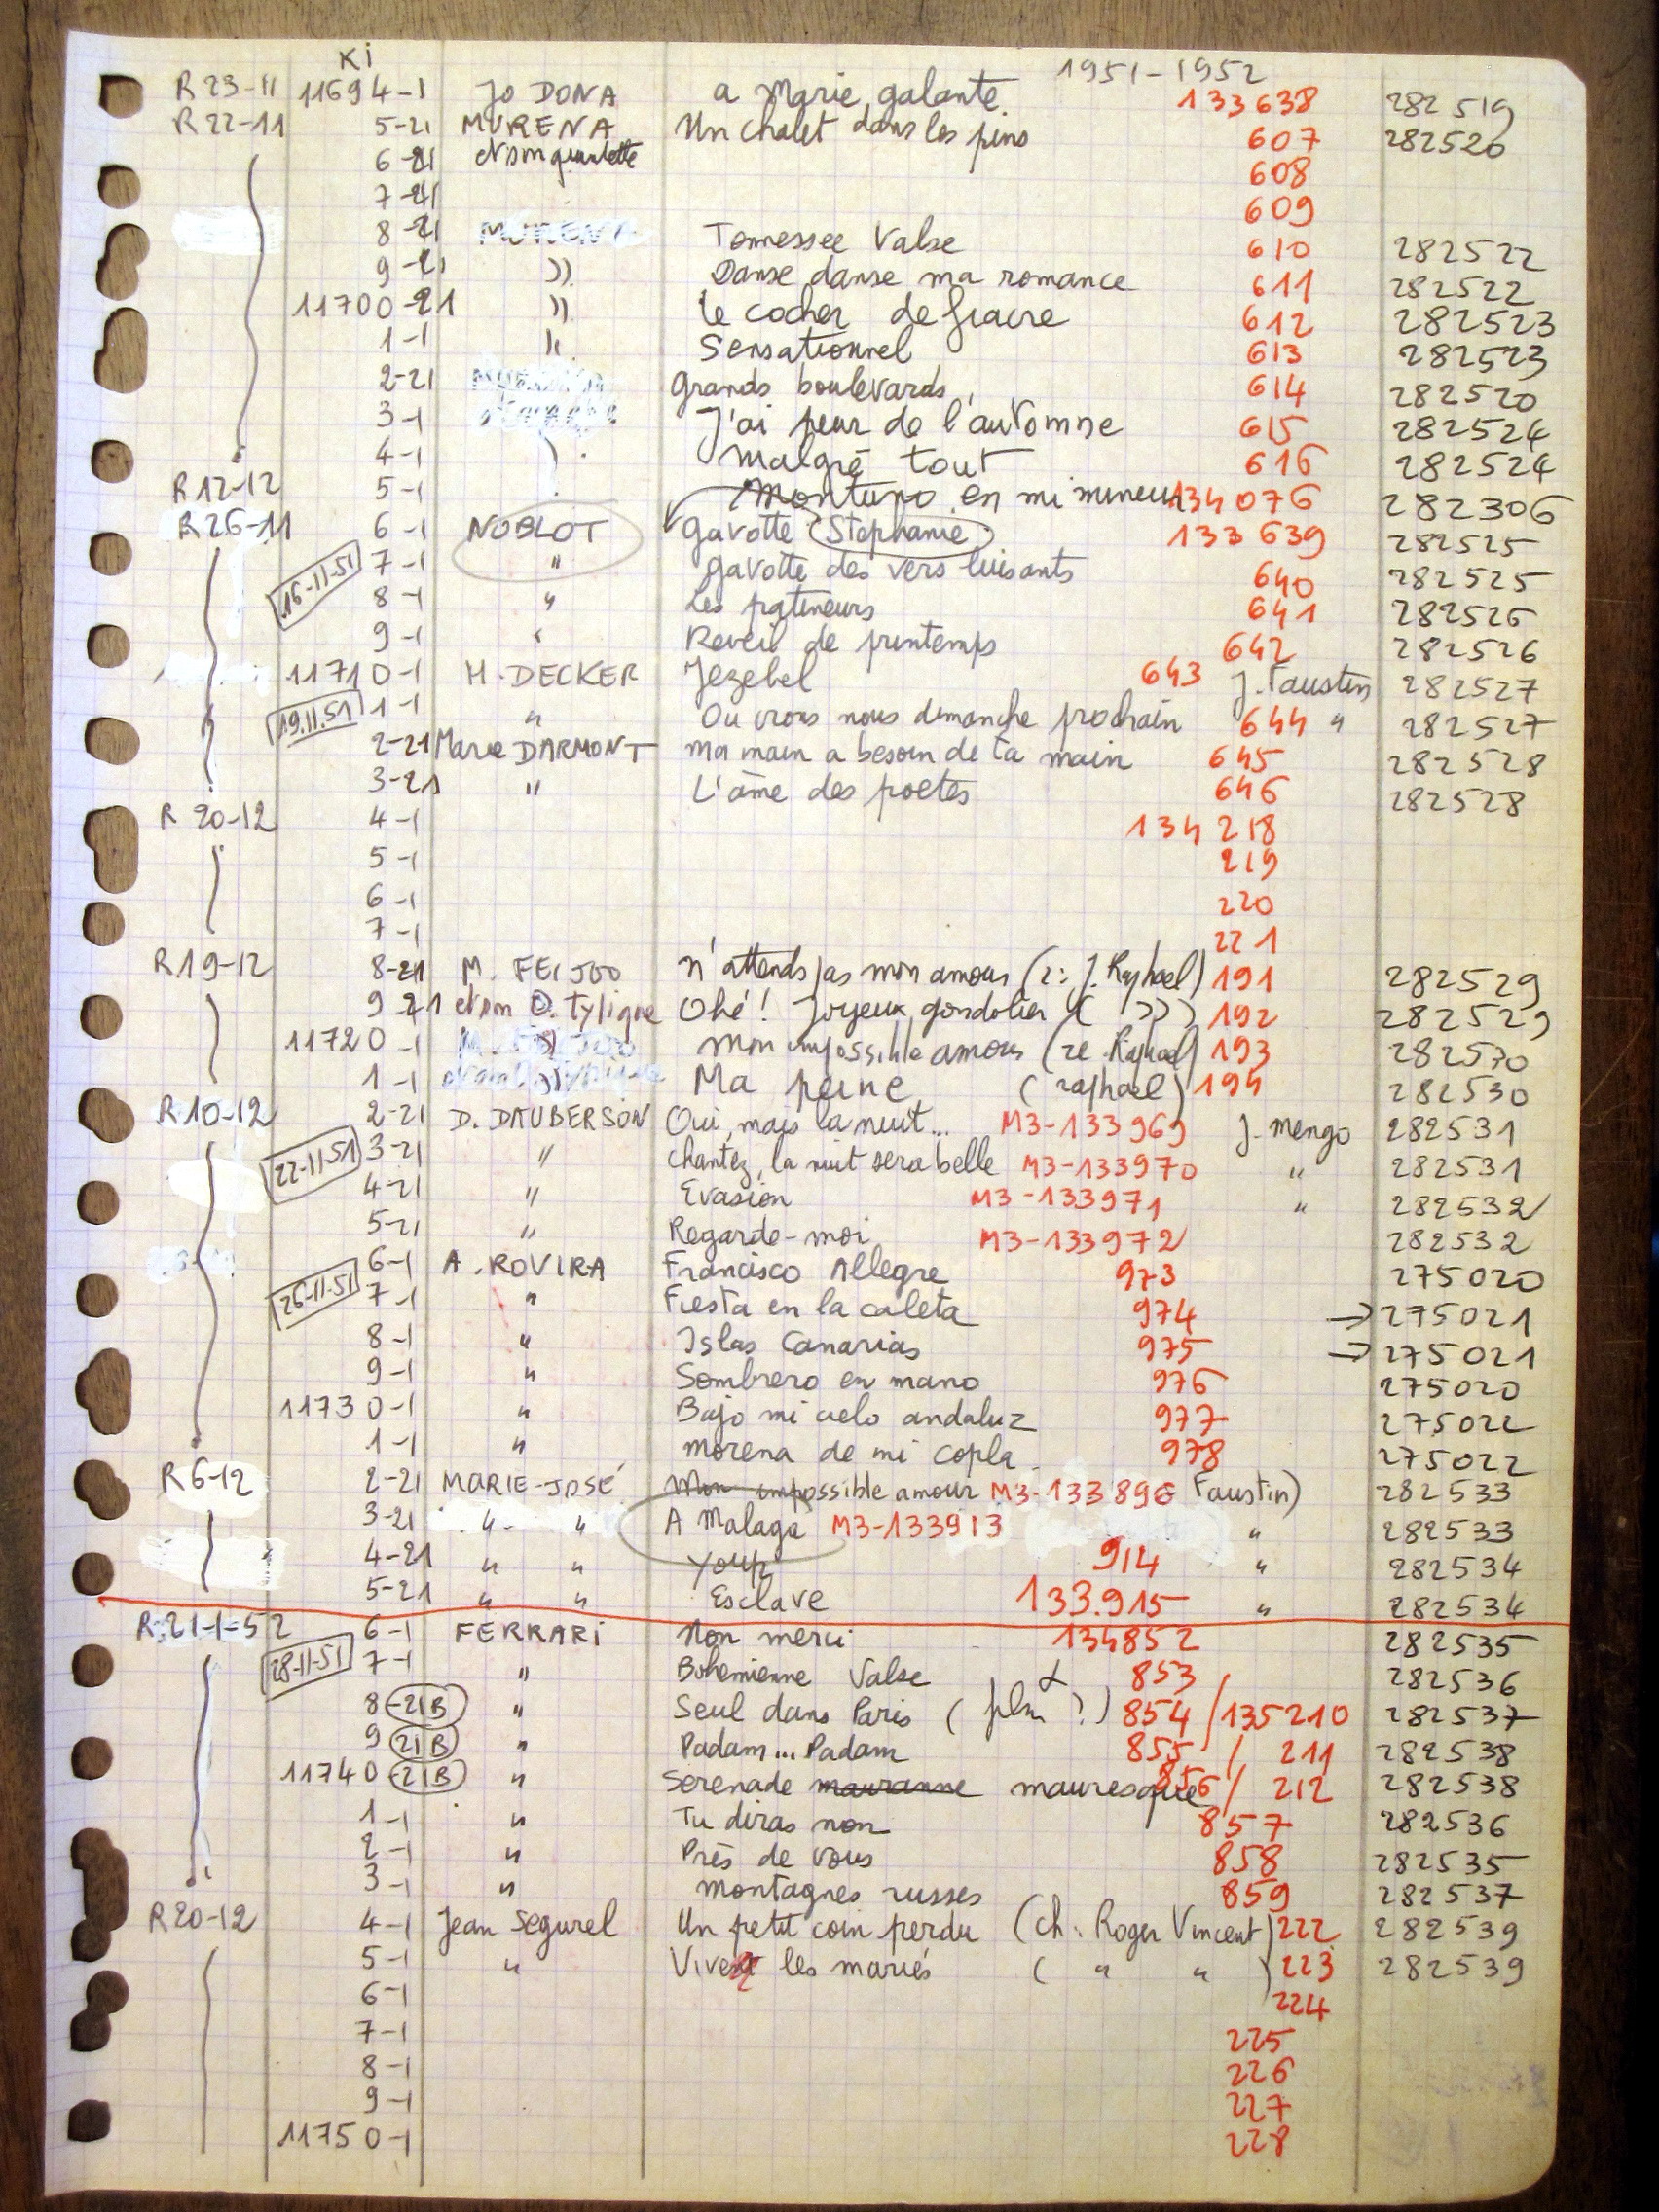 Ki 1951-1952
R 23-11 11694-1 Jo DONA a Marie galante 133638 282519
R 22-11 5-21 MURENA Un chalet dans les pins 607 282520
6-21 et son quartette 608
7-21 609
8-21 MURENA Tennessee Valse 610 282522
9-21 )) Danse danse ma romance 611 282522
11700-21 )) le cocher de fiacre 612 282523
1-1 )) Sensationnel 613 282523
2-21 Grands boulevards 614 282520
3-1 J'ai peur de l'automne 615 282524
4-1 malgré tout 616 282524
R 12-12 5-1 Montuno en mi mineur 134076 282306
R 26-11 6-1 NOBLOT Gavotte Stephanie 133639 282525
16-11-51 7-1 " gavotte des vers luisants 640 282525
8-1 " Les patineurs 641 282526
9-1 " Reveil de printemps 642 282526
11710-1 H. DECKER Jezebel 643 J. Faustin 282527
19.11.51 1-1 " Ou irons nous dimanche prochain 644 " 282527
2-21 Marie DARMONT Ma main a besoin de ta main 645 282528
3-21 " L'âme des poetes 646 282528
R 20-12 4-1 134218
5-1 219
6-1 220
7-1 221
R 19-12 8-21 M. FEIJOO N'attends pas mon amour (r: J. Raphael) 191 282529
9 21 et son O. Typique Ohé! Joyeux gondolier ( )) ) 192 282529
11720-1 M. FEIJOO Mon impossible amour (re. Raphael) 193 282570
1-1 Ma peine (raphael) 194 282530
R 10-12 2-21 D. DAUBERSON Oui, mais la nuit... M3-133969 J. Mengo 282531
22-11-51 3-21 " chantez, la nuit sera belle M3-133970 " 282531
4-21 " Evasion M3-133971 " 282532
5-21 " Regarde-moi M3-133972 282532
6-1 A. ROVIRA Francisco Allegre 973 275020
26-11-51 7-1 " Fiesta en la caleta 974 → 275021
8-1 " Islas Canarias 975 → 275021
9-1 " Sombrero en mano 976 275020
11730-1 " Bajo mi cielo andaluz 977 275022
1-1 " Morena de mi copla 978 275022
R 6-12 2-21 MARIE-JOSÉ Mon impossible amour M3-133896 Faustin) 282533
3-21 " " A Malaga M3-133913 " 282533
4-21 " " Youp 914 " 282534
5-21 " " Esclave 133.915 " 282534
R.21-1-52 6-1 FERRARI Non merci 134852 282535
28-11-51 7-1 " Bohemienne Valse 853 282536
8-21B " Seul dans Paris ( ?) 854 /135210 282537
9 21B " Padam... Padam 855 / 211 282538
11740-21B " Serenade mauranne mauresque 856 / 212 282538
1-1 " Tu diras non 857 282536
2-1 " Près de vous 858 282535
3-1 " montagnes russes 859 282537
R20-12 4-1 Jean Segurel Un petit coin perdu (ch. Roger Vincent) 222 282539
5-1 " Vive les mariés ( " " ) 223 282539
6-1 224
7-1 225
8-1 226
9-1 227
11750-1 228